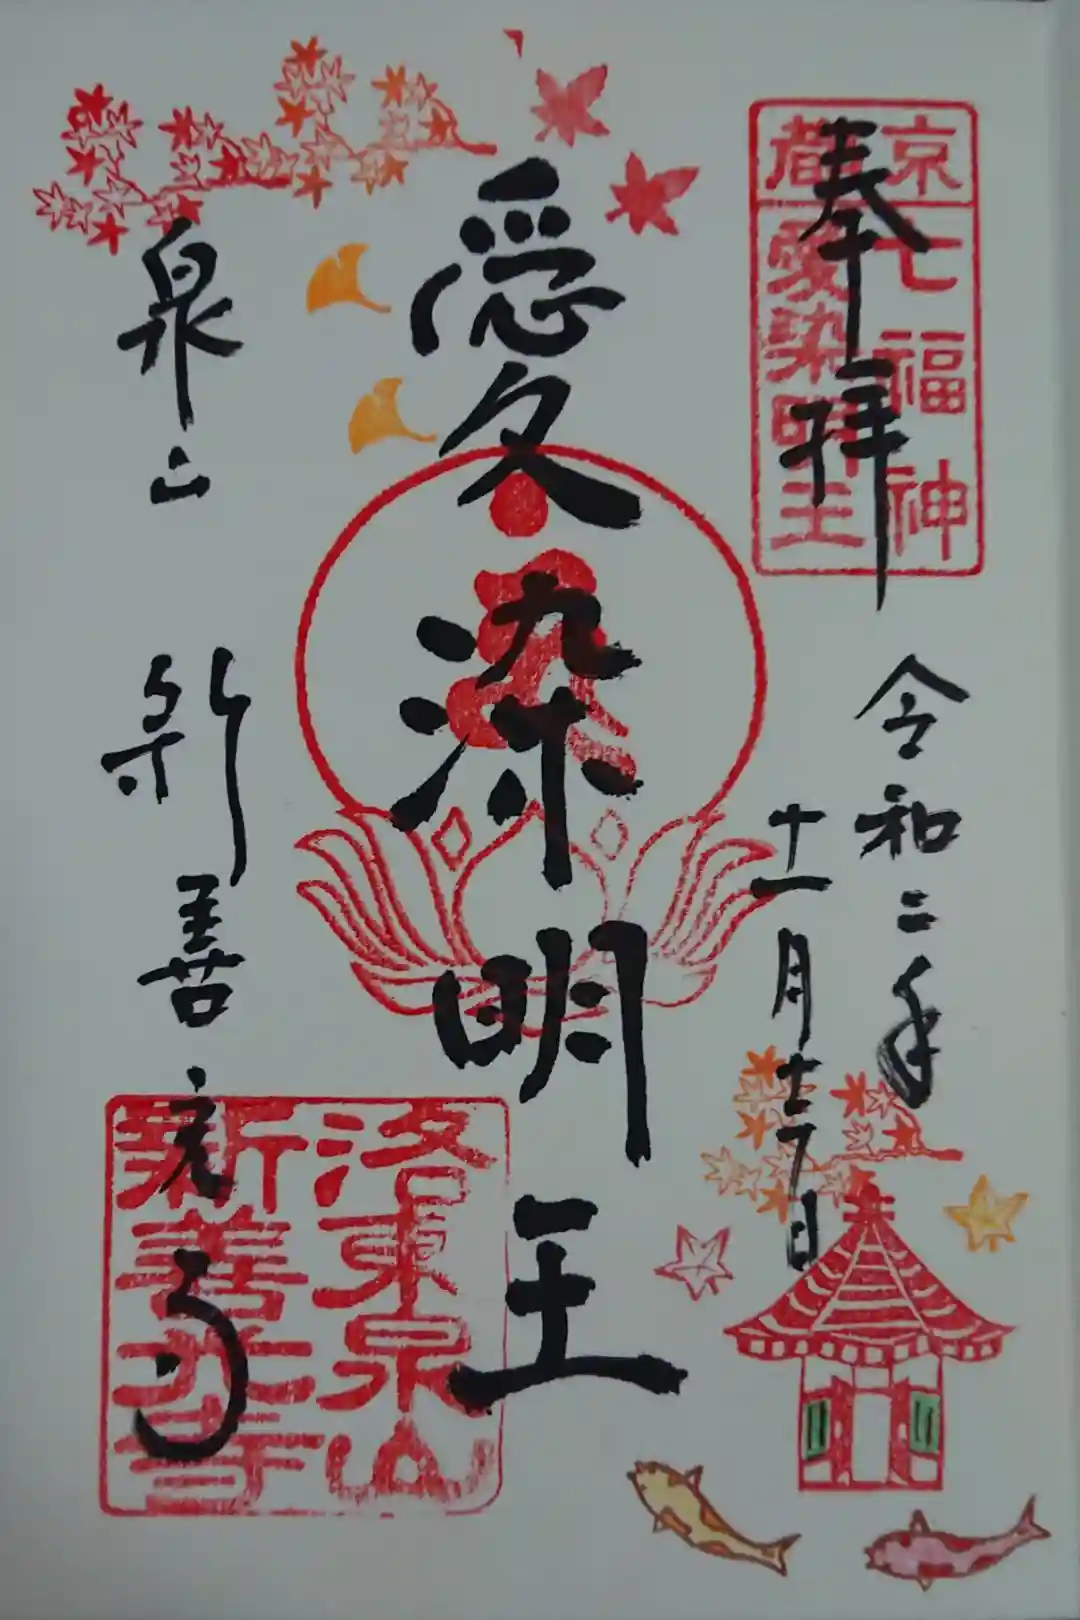 京都
七福神
愛染明王
奉拝
令和二年
十一月
愛染明王
泉山 新善光寺
洛東泉山
新善光寺